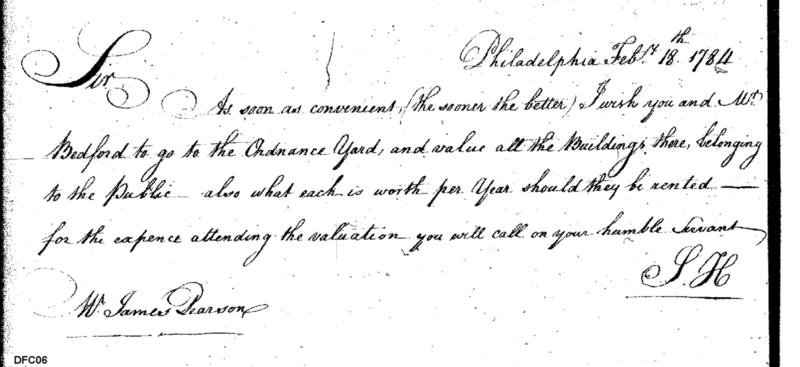 Philadelphia Feby. 18th. 1784
Sir
As soon as convenient, (the sooner the better) I wish you and Mr.
Bedford to go to the Ordnance Yard, and value all the Buildings there, belonging
to the Public — also what each is worth per Year should they be rented —
for the expence attending the valuation you will call on your humble Servant
S. H
Mr. James Pearson
DFC06